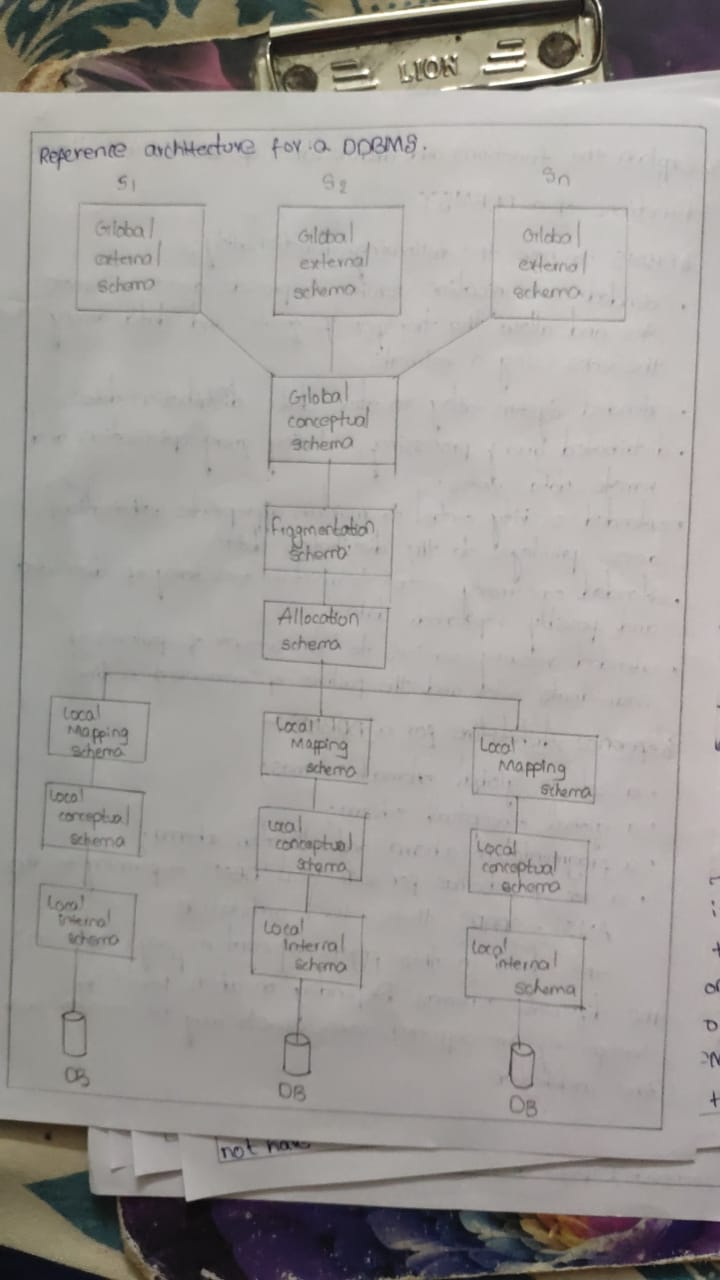 LION
Reference architecture for a DDBMS.
S1
S2
Sn
Global
external
schema
Global
external
schema
Global
external
schema
Global
conceptual
schema
Fragmentation
schema
Allocation
schema
Local
Mapping
schema
Local
Mapping
schema
Local
Mapping
schema
Local
conceptual
schema
Local
conceptual
schema
Local
conceptual
schema
Local
internal
schema
Local
Internal
schema
Local
internal
schema
DB
DB
DB
not